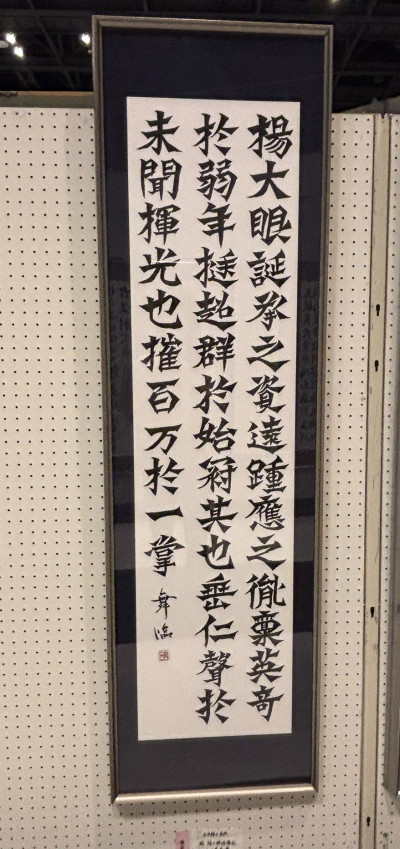 楊大眼誕承之資遠踵應之胤稟英奇
於弱年挺超群於始冠其也垂仁聲於
未聞揮光也摧百万於一掌 舞臨